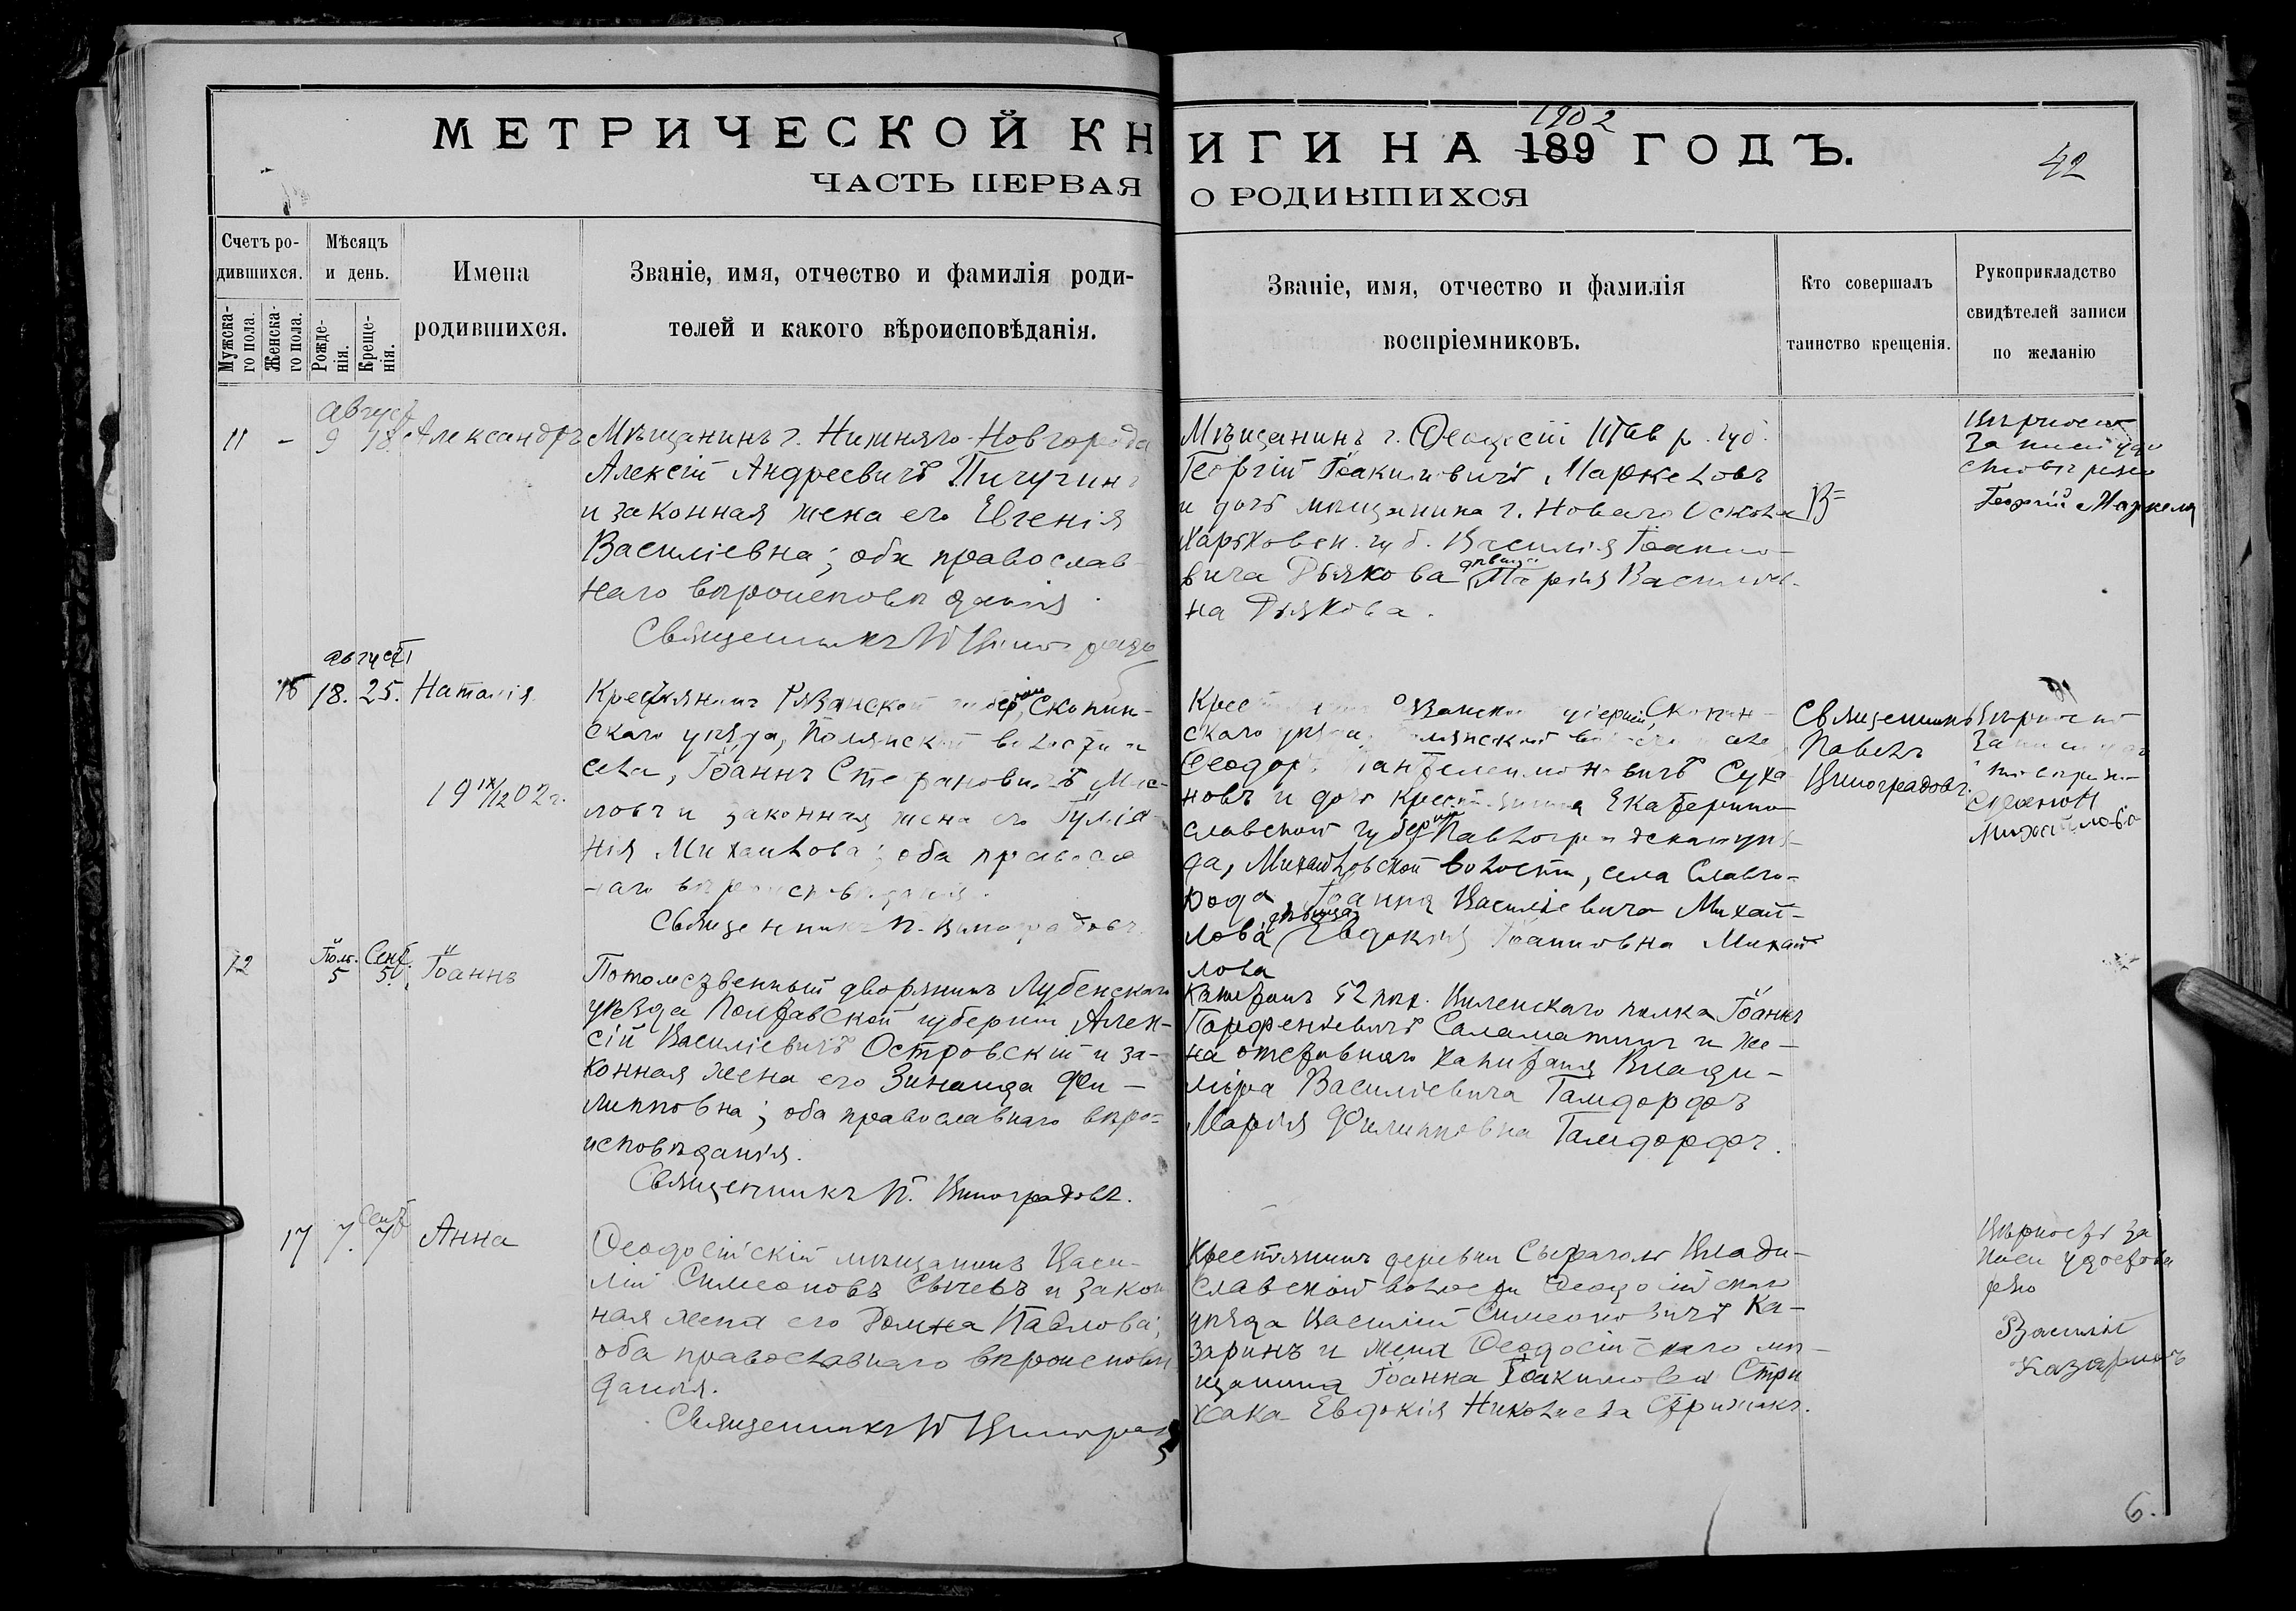 МЕТРИЧЕСКОЙ КНИГИ НА 189 ГОДЪ.
1902
42
ЧАСТЬ ПЕРВАЯ О РОДИВШИХСЯ
Счетъ ро-
дившихся.
Мужска-
го пола.
Женска-
го пола.
Мѣсяцъ
и день.
Рожде-
нія.
Креще-
нія.
Имена
родившихся.
Званіе, имя, отчество и фамилія роди-
телей и какого вѣроисповѣданія.
Званіе, имя, отчество и фамилія
воспріемниковъ.
Кто совершалъ
таинство крещенія.
Рукоприкладство
свидѣтелей записи
по желанію
Август
11 - 9 18 Александръ
Мѣщанинъ г. Нижняго-Новгорода
Алексій Андреевичъ Пичугинъ
и законная жена его Евгенія
Василіевна; оба православ-
наго вѣроисповѣданія.
Священникъ П Виноградо
Мѣщанинъ г. Ѳеодосіи Тав р. губ.
Георгій Іоакимовичъ Маркеловъ
и дочь мѣщанина г. Новаго Оскола
Харьковск. губ. Василія Іоанно-
вича Дьякова дѣвица Марія Василіев-
на Дьякова.
Вѣрность
записи удо
стовѣряю
Георгій Маркелов
август
16 18. 25. Наталія
19 IX/12 02 г.
Крестьянинъ Рязанской губерніи, Скопин-
скаго уѣзда, Полянской волости и
села, Іоаннъ Стефановичъ Мас-
ловъ и законная жена его Іуліа-
нія Михаилова; оба православ
наго вѣроисповѣданія.
Священникъ П. Виноградовъ.
Крес Рязанской губерніи, Скопин-
скаго уѣзда, Полянской волости и села
Ѳеодоръ Пантелеимоновичъ Суха
новъ и дочь крестьянина Екатерино-
славской губерніи Павлоградскаго уѣз-
да, Михайловской волости, села Славго-
рода Іоанна Василіевича Михай-
лова дѣвица Евдокія Іоанновна Михай
лова
Священникъ
Павелъ
Виноградовъ.
Вѣрность
записи удо
стовѣряю
Михайлово
12 Іюл. 5 Сент. 5. Іоаннъ
Потомственный дворянинъ Лубенскаго
уѣзда Полтавской губерніи Алек-
сій Василіевичъ Островскій и за-
конная жена его Зинаида Фи-
липповна; оба православнаго вѣро-
исповѣданія.
Священникъ П. Виноградовъ.
Капитанъ 52 пѣх. Виленскаго полка Іоаннъ
Парфеніевичъ Саламатинъ и же-
на отставнаго капитана Влади-
міра Василіевича Гамдорфъ
Марія Филипповна Гамдорфъ.
Сент
17 7. 7 Анна
Ѳеодосійскій мѣщанинъ Васи-
лій Симеоновъ Сычевъ и закон
ная жена его Домна Павлова;
оба православнаго вѣроисповѣ
данія.
Священникъ П Виноградо
Крестьянинъ деревни Сыраголъ Влади-
славской волости Ѳеодосійскаго
уѣзда Василій Симеоновичъ Ка-
заринъ и жена Ѳеодосійскаго мѣ-
щанина Іоанна Іоакимова Стри
жака Евдокія Николаева Стрижакъ.
Вѣрность за
писи удостовѣ
ряю
Василій
Казаринъ
6.